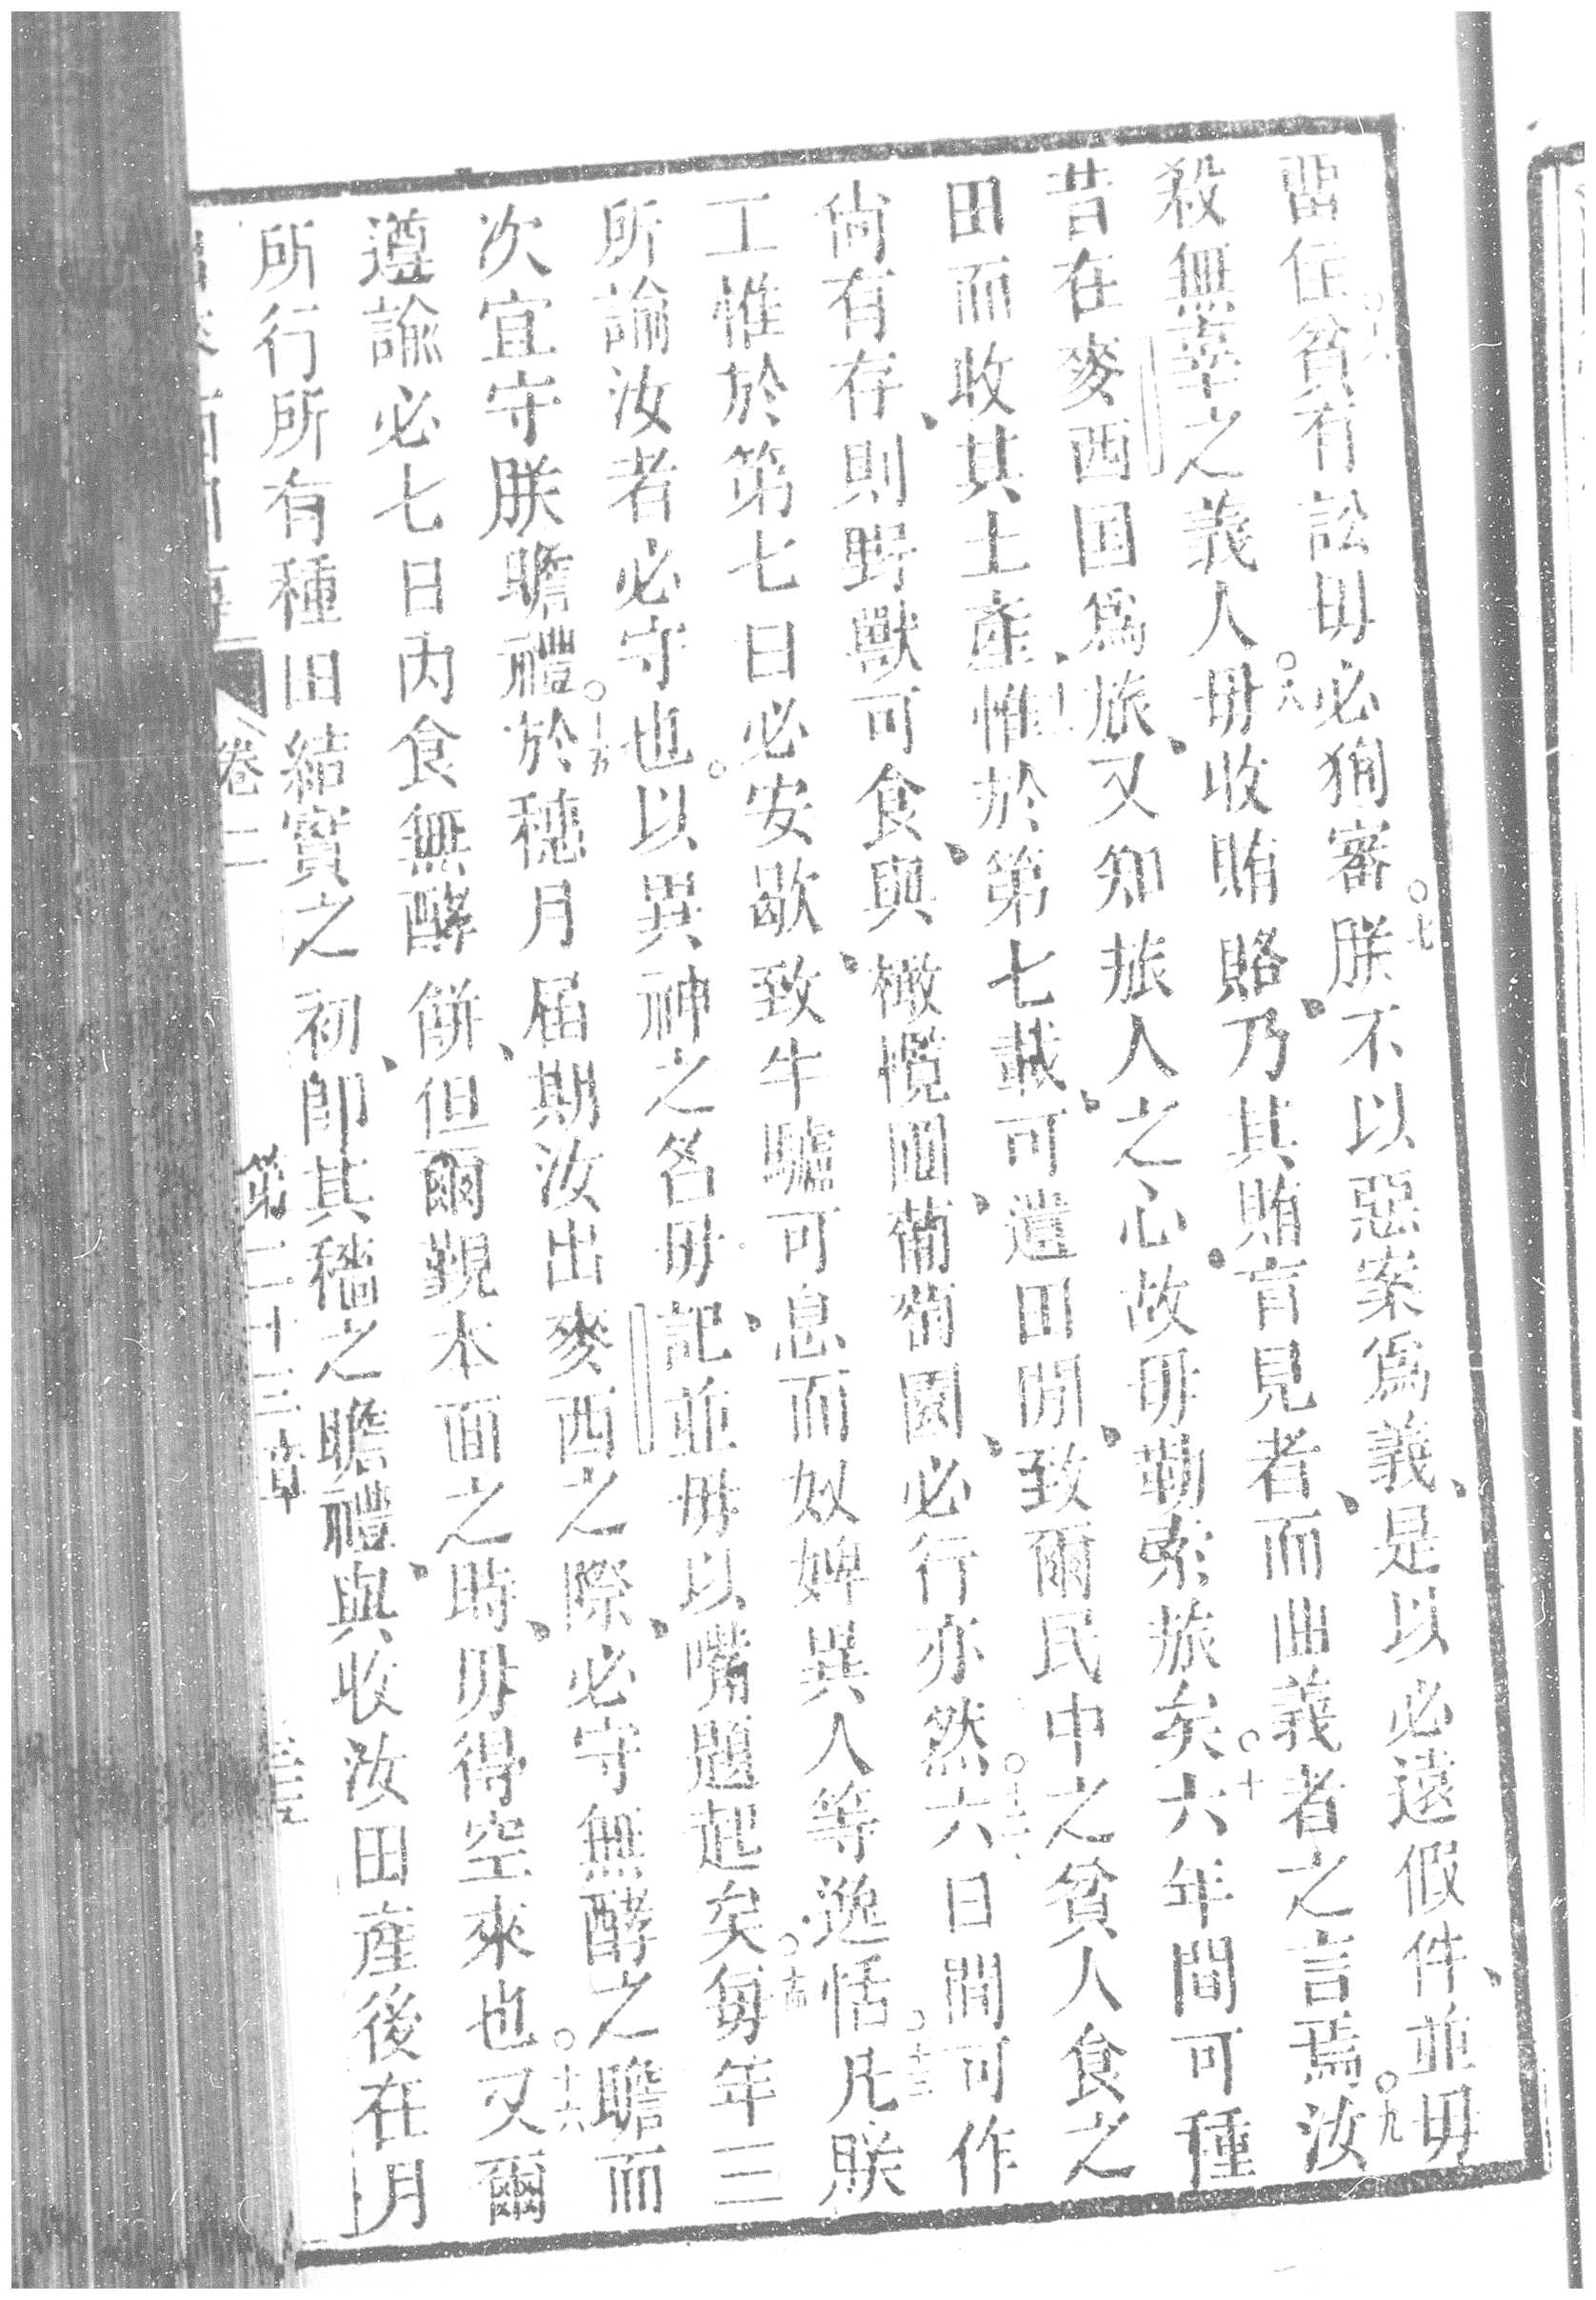 畱住○六貧有訟毋必狥審○七朕不以惡案爲義、是以必遠假件、並毋
殺無辜之義人○八毋收賄賂、乃其賄盲見者、而曲義者之言焉○九汝
昔在麥西国爲旅、又知旅人之心、故毋勒索旅矣○十六年間可種
田而收其土產、惟於第七載、可遺田閒、致爾民中之貧人食之
尙有存、則野獸可食、與橄欖園、葡萄園、必行亦然○十二六日間可作
工惟於第七日必安歇、致牛驢可息而奴婢異人等逸恬○十三凡朕
所諭汝者必守也。以異神之名毋記、並毋以嘴題起矣○十四每年三
次宜守朕瞻禮○十五於穗月届期、汝出麥西之際、必守無酵之瞻而
遵諭必七日內食無酵餅、但爾覲本面之時、毋得空來也○十六又爾
所行所有種田結實之初、即其穡之瞻禮、與收汝田產後在月
卷二
第二十三章